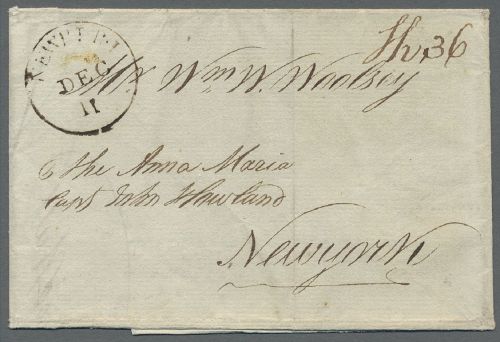 NEWPT R.I.
DEC
11
Sh 36
Mr Wm W. Woolsey
⅌ the Anna Maria
Capt John Howland
Newyork